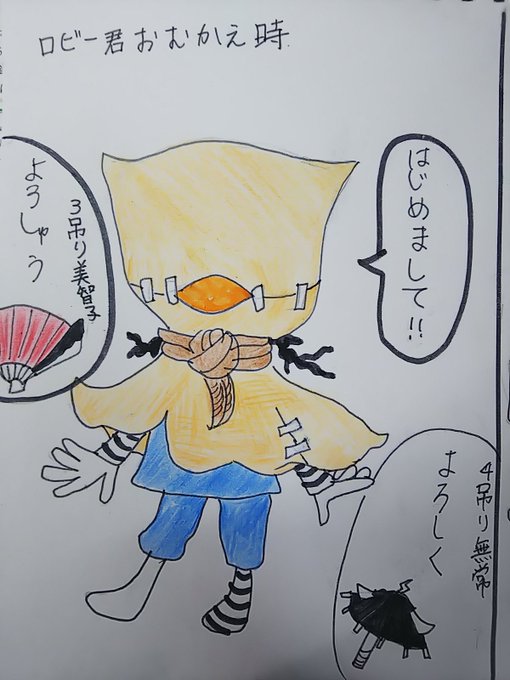 ロビー君おむかえ時
はじめまして!!
3吊り美智子
よろしゅう
4吊り無常
よろしく